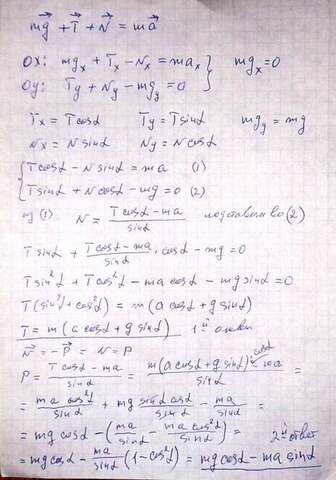 m⃗g + T⃗ + N⃗ = ma⃗
OX: mgₓ + Tₓ − Nₓ = maₓ } mgₓ = 0
OY: Tᵧ + Nᵧ − mgᵧ = 0
Tₓ = T cosα Tᵧ = T sinα mgᵧ = mg
Nₓ = N sinα Nᵧ = N cosα
{ T cosα − N sinα = ma (1)
T sinα + N cosα − mg = 0 (2)
из (1) N = (T cosα − ma)/sinα подставим во (2)
T sinα + (T cosα − ma)/sinα · cosα − mg = 0
T sin²α + T cos²α − ma cosα − mg sinα = 0
T (sin²α + cos²α) = m (a cosα + g sinα)
T = m (a cosα + g sinα) 1ый ответ
N⃗ = −P⃗ = N = P
P = (T cosα − ma)/sinα = (m(a cosα + g sinα) cosα − ma)/sinα =
= ma cos²α/sinα + mg sinα cosα/sinα − ma/sinα =
= mg cosα − (ma/sinα − ma cos²α/sinα) = 2ой ответ
= mg cosα − ma/sinα (1 − cos²α) = mg cosα − ma sinα